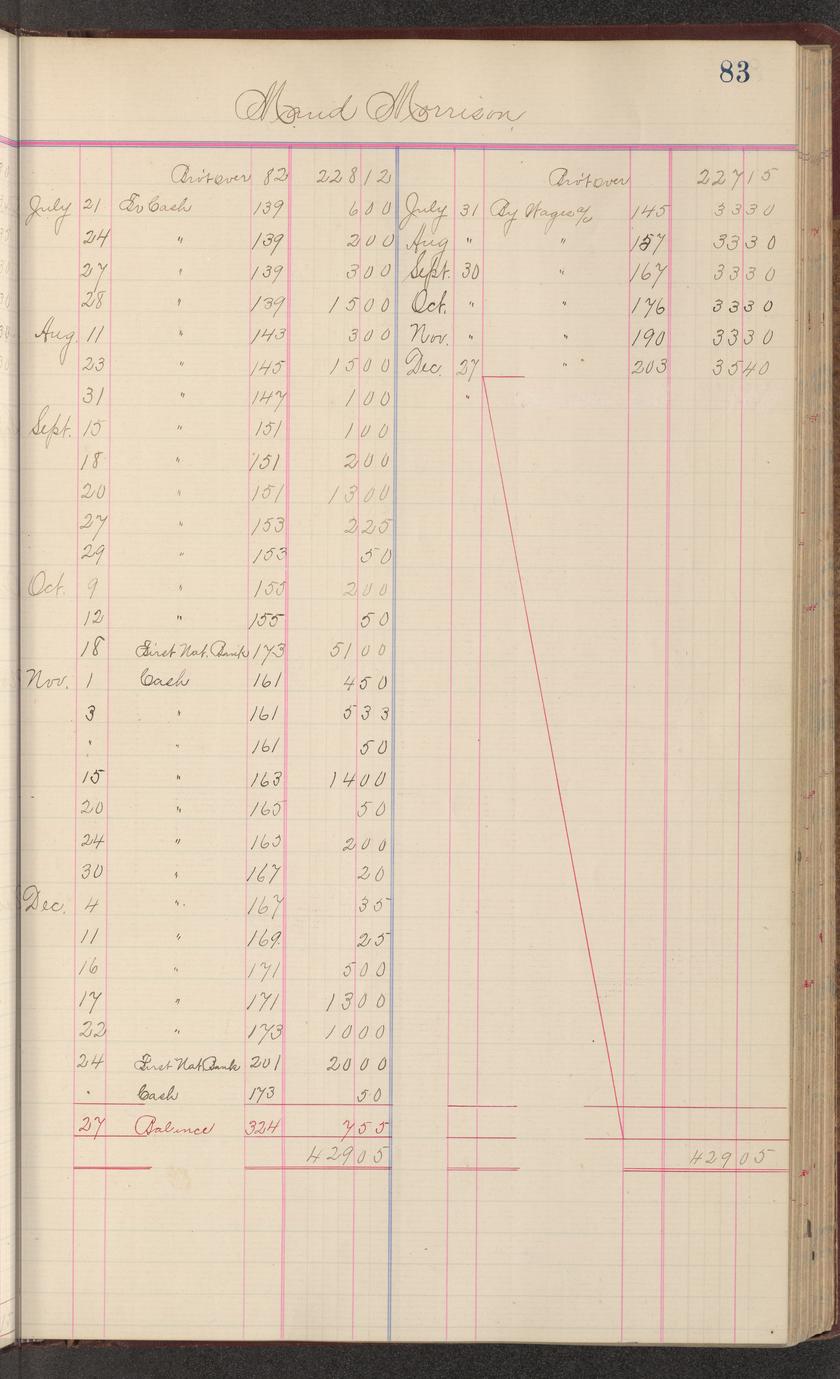 83
Maud Morrison
Bro't over 82 228 12
July 21 To Cash 139 6 00
24 " 139 2 00
27 " 139 3 00
28 " 139 15 00
Aug. 11 " 143 3 00
23 " 145 15 00
31 " 147 1 00
Sept. 15 " 151 1 00
18 " 151 2 00
20 " 151 13 00
27 " 153 2 25
29 " 153 50
Oct. 9 " 155 2 00
12 " 155 50
18 First Nat. Bank 173 51 00
Nov. 1 Cash 161 4 50
3 " 161 5 33
" " 161 50
15 " 163 14 00
20 " 165 50
24 " 165 2 00
30 " 167 20
Dec. 4 " 167 35
11 " 169 25
16 " 171 5 00
17 " 171 13 00
22 " 173 10 00
24 First Nat Bank 201 20 00
" Cash 173 50
27 Balance 324 7 55
429 05
Bro't over 227 15
July 31 By Wages a/c 145 33 30
Aug " " 157 33 30
Sept. 30 " 167 33 30
Oct. " " 176 33 30
Nov. " " 190 33 30
Dec. 27 " 203 35 40
"
429 05